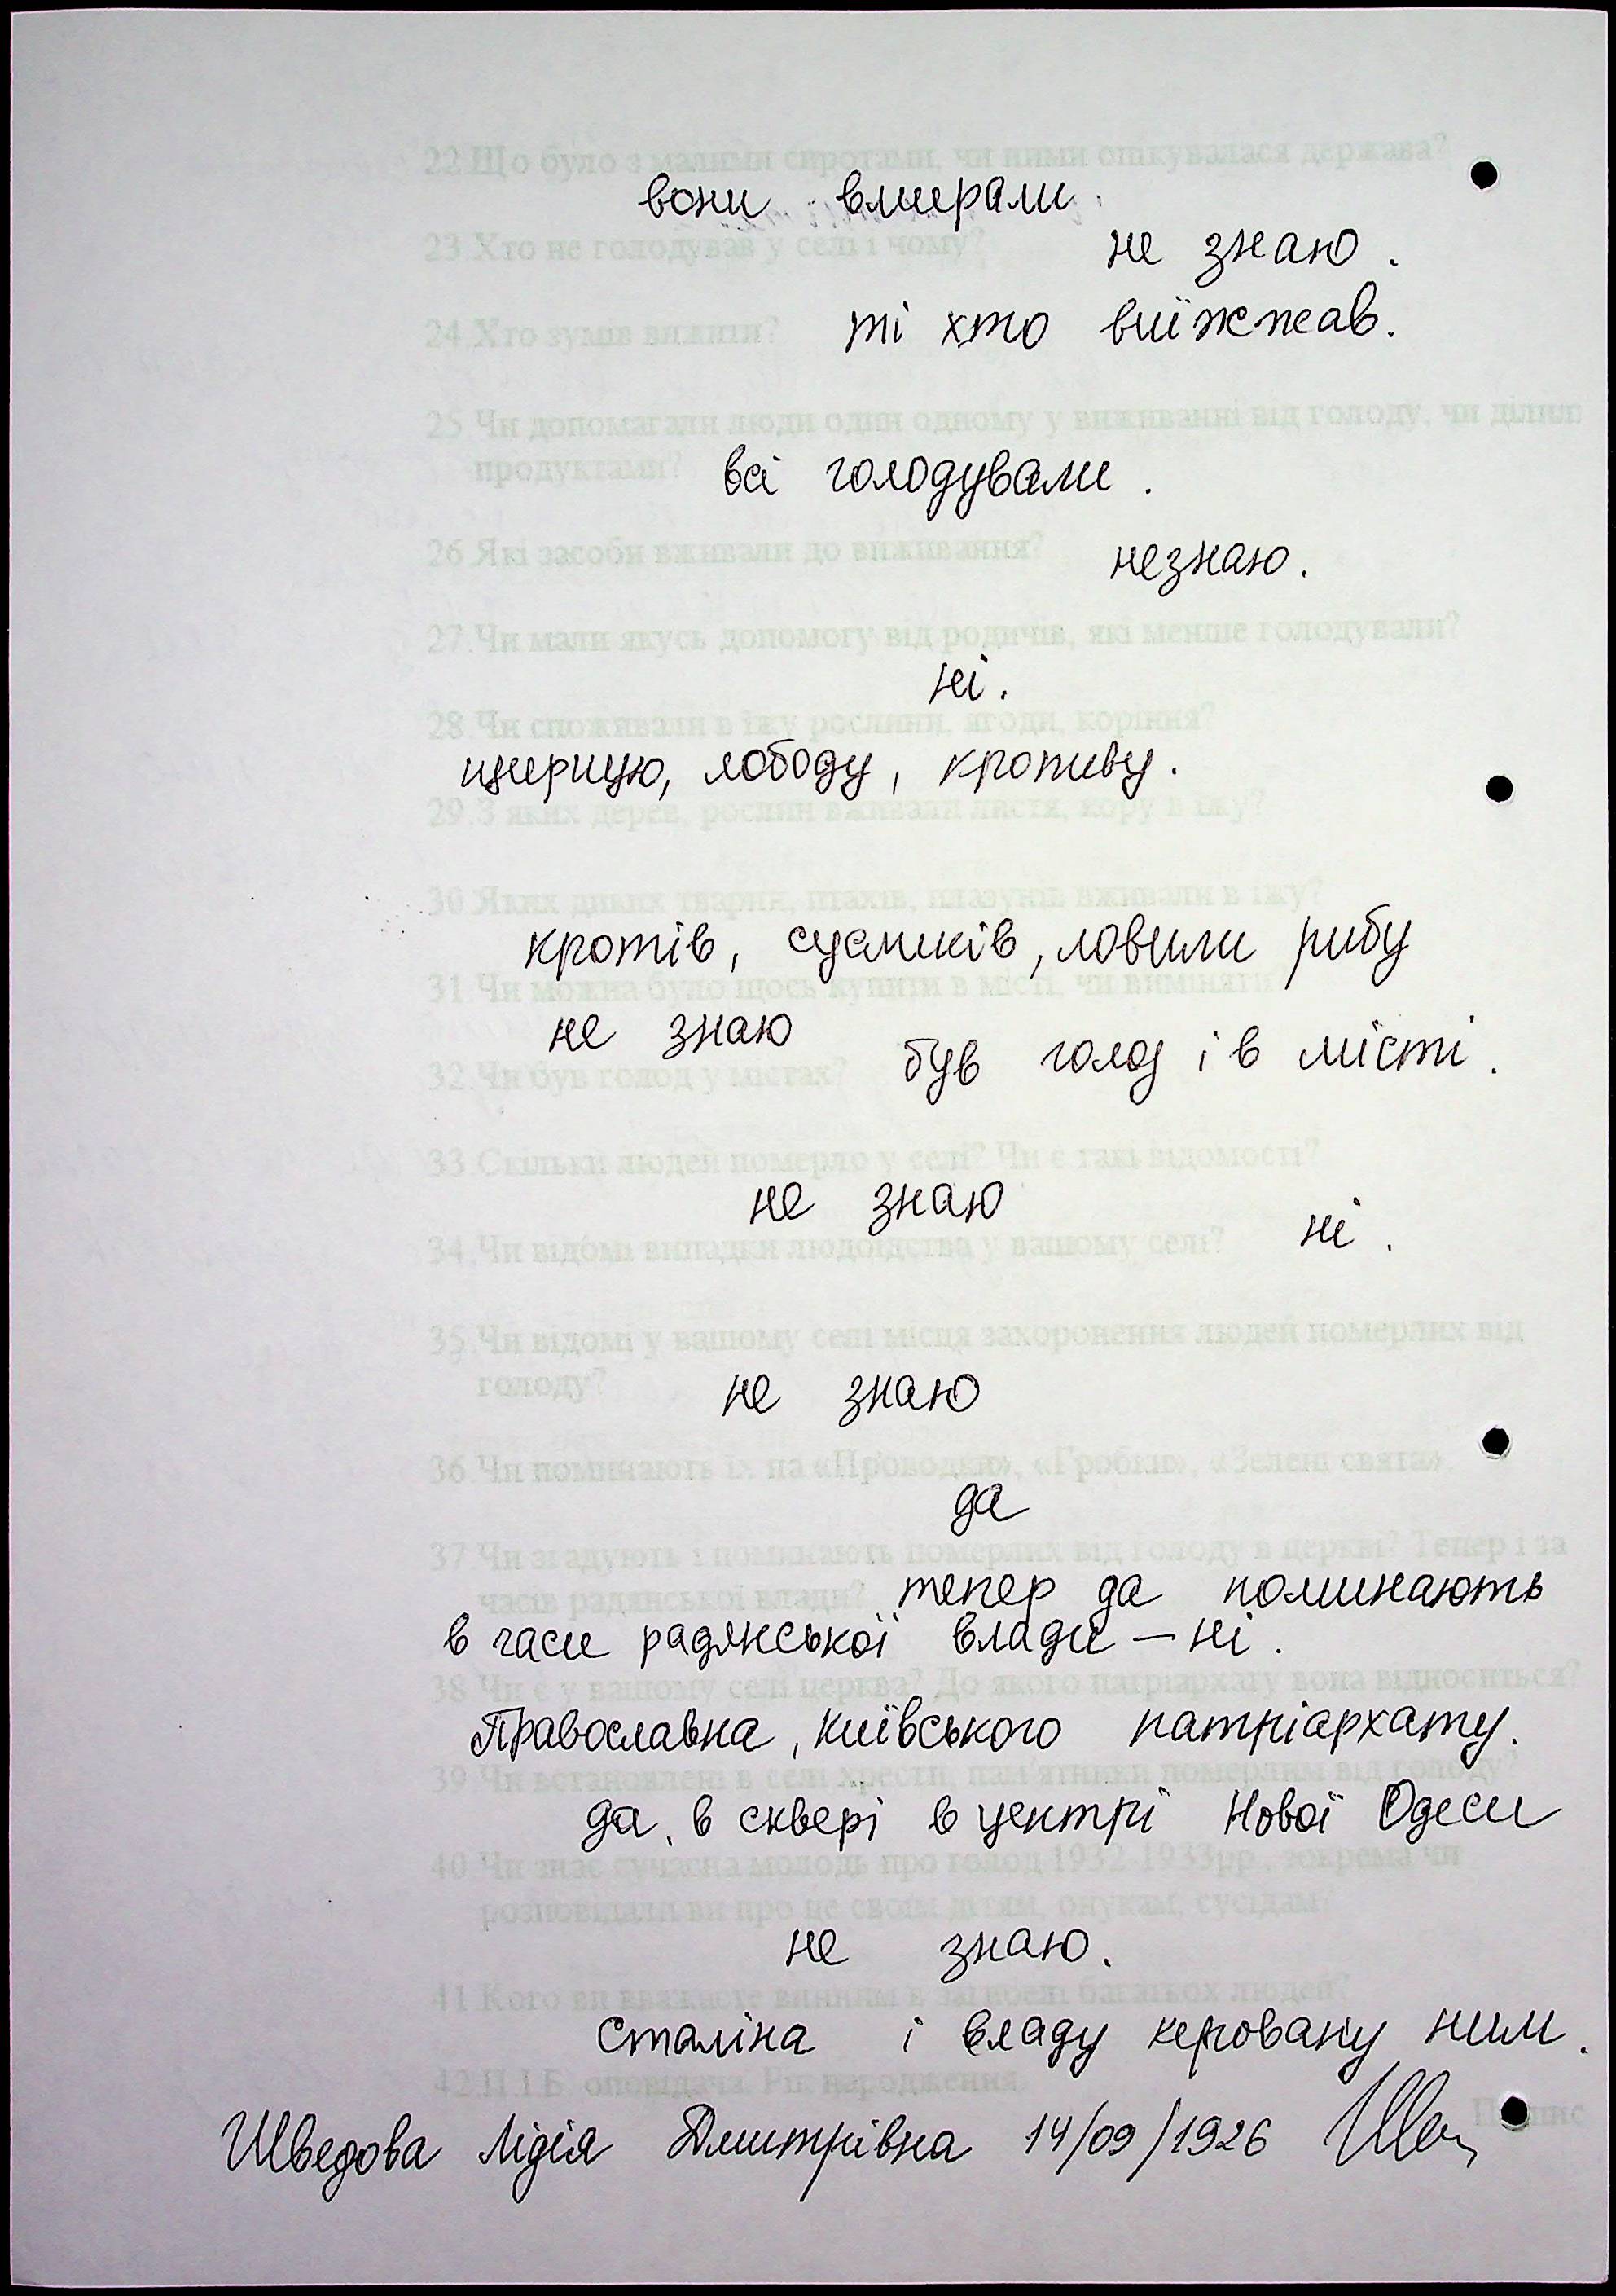 22.Що було з малими сиротами, чи ними опікувалася держава?
вони вмерали.
23.Хто не голодував у селі і чому?
не знаю.
24.Хто зумів вижити? ті хто виїжжав.
25.Чи допомагали люди один одному у виживанні від голоду, чи ділили
продуктами? всі голодували.
26.Які засоби вживали до виживання? незнаю.
27.Чи мали якусь допомогу від родичів, які менше голодували?
ні.
28.Чи споживали в їжу рослини, ягоди, коріння?
щирицю, лободу, кропиву.
29.З яких дерев, рослин вживали листя, кору в їжу?
30.Яких диких тварин, птахів, плазунів вживали в їжу?
кротів, сусликів, ловили рибу
31.Чи можна було щось купити в місті, чи виміняти
не знаю
32.Чи був голод у містах? був голод і в місті.
33.Скільки людей померло у селі? Чи є такі відомості?
не знаю
34.Чи відомі випадки людоїдства у вашому селі? ні.
35.Чи відомі у вашому селі місця захоронення людей померлих від
голоду? не знаю
36.Чи поминають їх на «Проводки», «Гробки», «Зелені свята».
да
37.Чи згадують і поминають померлих від голоду в церкві? Тепер і за
часів радянської влади? тепер да поминають
в часи радянської влади – ні.
38.Чи є у вашому селі церква? До якого патріархату вона відноситься?
Православна, Київського патріархату.
39.Чи встановлені в селі хрести, пам'ятники померлим від голоду?
да, в сквері в центрі Нової Одеси
40.Чи знає сучасна молодь про голод 1932-1933рр., зокрема чи
розповідали ви про це своїм дітям, онукам, сусідам?
не знаю.
41.Кого ви вважаєте винним в загибелі багатьох людей?
Сталіна і владу керовану ним.
42.П.І.Б. оповідача. Рік народження.
Підпис
Шведова Лідія Дмитрівна 14/09/1926